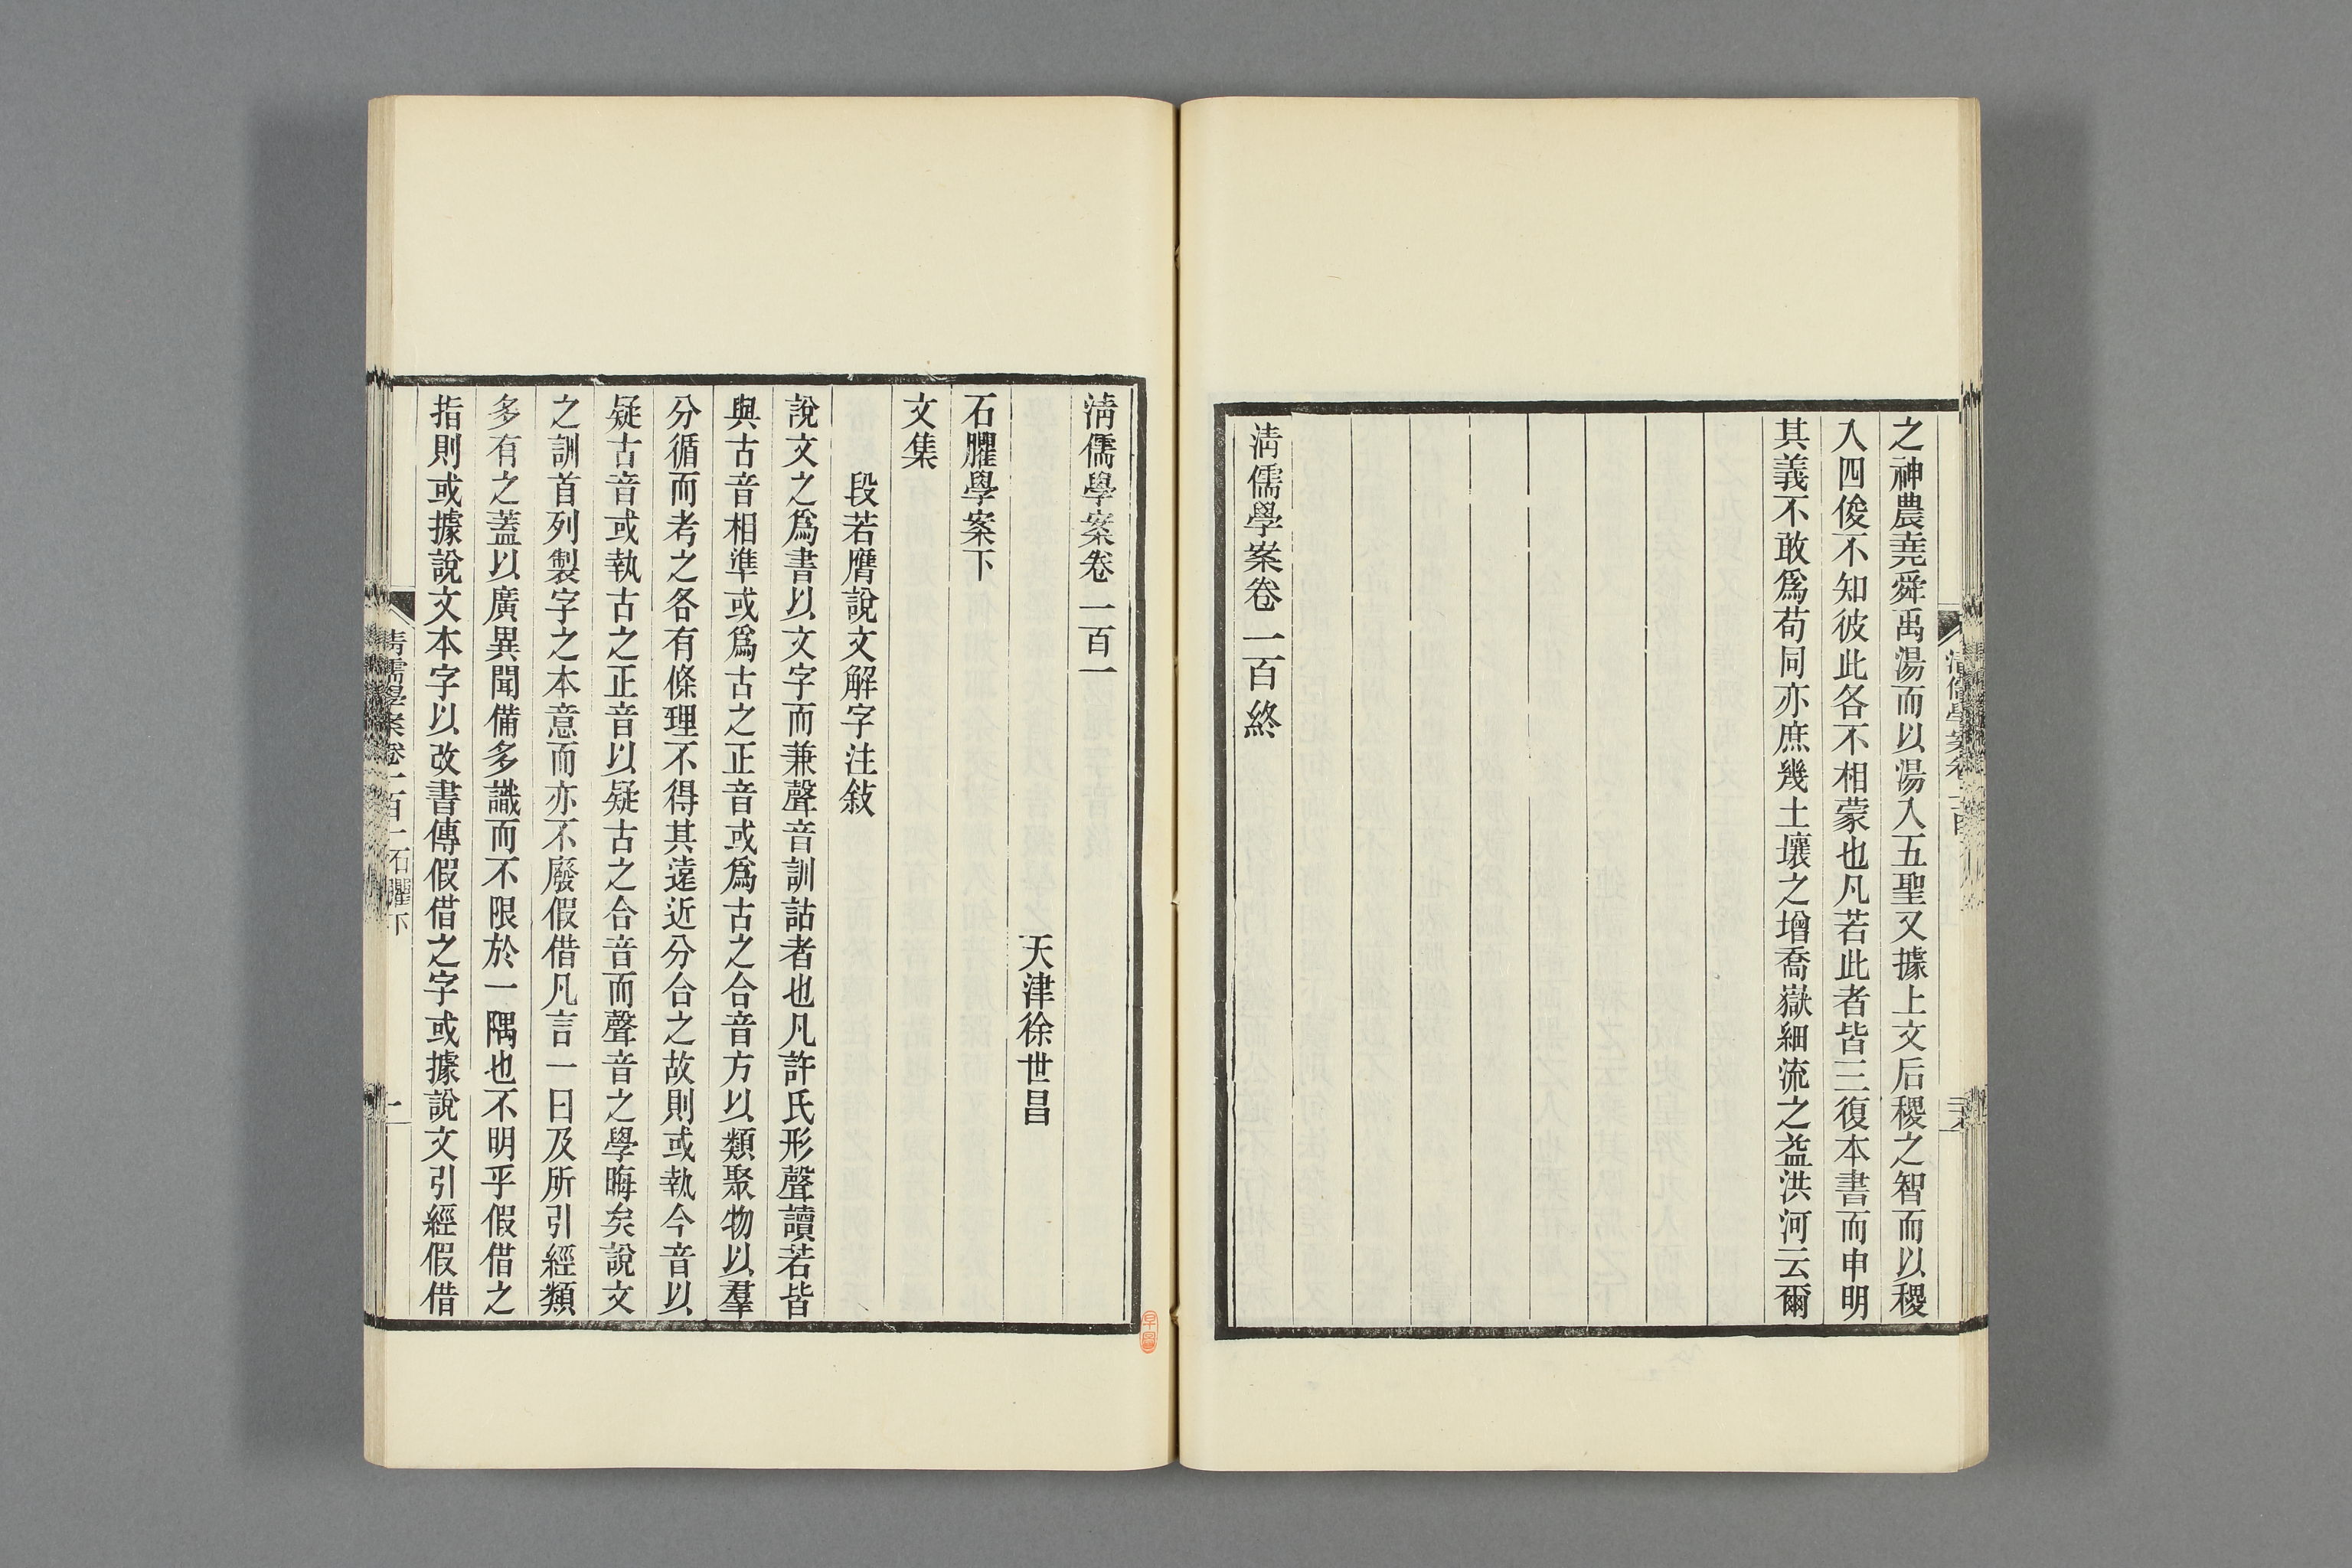 之神農堯舜禹湯而以湯入五聖又據上文后稷之智而以稷
入四俊不知彼此各不相蒙也凡若此者皆三復本書而申明
其義不敢爲苟同亦庶幾土壤之增喬嶽細流之益洪河云爾
淸儒學案卷一百終
淸儒學案卷一百一
天津徐世昌
石臞學案下
文集
段若膺說文解字注敍
說文之爲書以文字而兼聲音訓詁者也凡許氏形聲讀若皆
與古音相準或爲古之正音或爲古之合音方以類聚物以羣
分循而考之各有條理不得其遠近分合之故則或執今音以
疑古音或執古之正音以疑古之合音而聲音之學晦矣說文
之訓首列製字之本意而亦不廢假借凡言一曰及所引經類
多有之蓋以廣異聞備多識而不限於一隅也不明乎假借之
指則或據說文本字以改書傳假借之字或據說文引經假借
淸儒學案卷一百一 石臞下
一